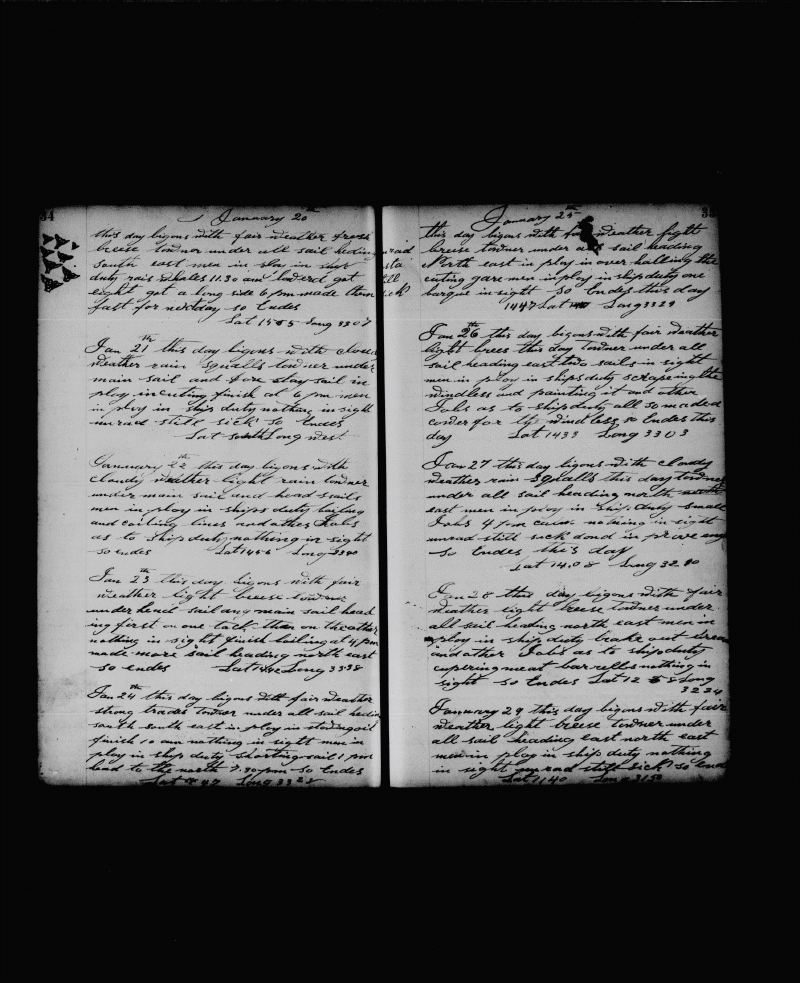 34
January 20th
this day bigons with fair weather fresh
breese under all sail heding
South east men in ploy in ship
duty rais whales 11.30 am lowerd got
eight got a long side 6 pm made them
fast for next day so Endes
Lat 15 5 Long 3307
Jan 21th this day bigons with
weather rain squalls under
main sail and fore stay sail in
ploy in cuting finish at 6 pm men
in ploy in ship duty nothing in sigh
unrad still sick so Endes
Lat south Long west
January 22th this day bigons with
cloudy weather light rain
under main sail and head sails
men in ploy in ships duty boiling
and coiling lines and other Jobs
as to ship duty nothing in sight
so endes Lat 1456 Long
Jan 23th this day bigons with fair
weather light breese
under head sail and main sail head
ing first on one tack then on the other
nothing in sight finish boiling at 4 pm
made more sail heading north east
so endes Lat Long 3338
Jan 24th this day bigons with fair weather
strong trades under all sail hedin
south south east in ploy in stowing oil
finish 10 am nothing in sight men in
ploy in ship duty shorting sail 1 pm
head to the north 7.30 pm so Endes
Lat 47 Long 33 28
January 25th
this day bigons with weather light
breise under all sail heading
North east in ploy in over halling the
cuting gare men in ploy in ship duty one
barque in sight so Endes this day
1447 Lat Long 3329
Jan 26th this day bigons with fair weather
light brees this day under all
sail heading east two sails in sight
men in ploy in ships duty scrapeing the
windless and painting it and other
Jobs as to ship duty all so maded
cover for the windless so Endes this
day Lat 1433 Long 3303
Jan 27 this day bigons with cloudy
weather rain squalls this day
under all sail heading north
east men in ploy in ship duty small
Jobs 4 pm nothing in sight
unrad still sick dond in prove eny
so Endes this day
Lat 14.08 Long 32.40
Jan 28 this day bigons with fair
weather light breese under
all sail heading north east men in
ploy in ship duty brake out
and other Jobs as to ship duty
cupering meat barrells nothing in
sight so Endes Lat 12 5 Long
3224
January 29 this day bigons with fair
weather light breese under
all sail heading east north east
men in ploy in ship duty nothing
in sight unrad still sick so end
Lat 1140 Long 3150